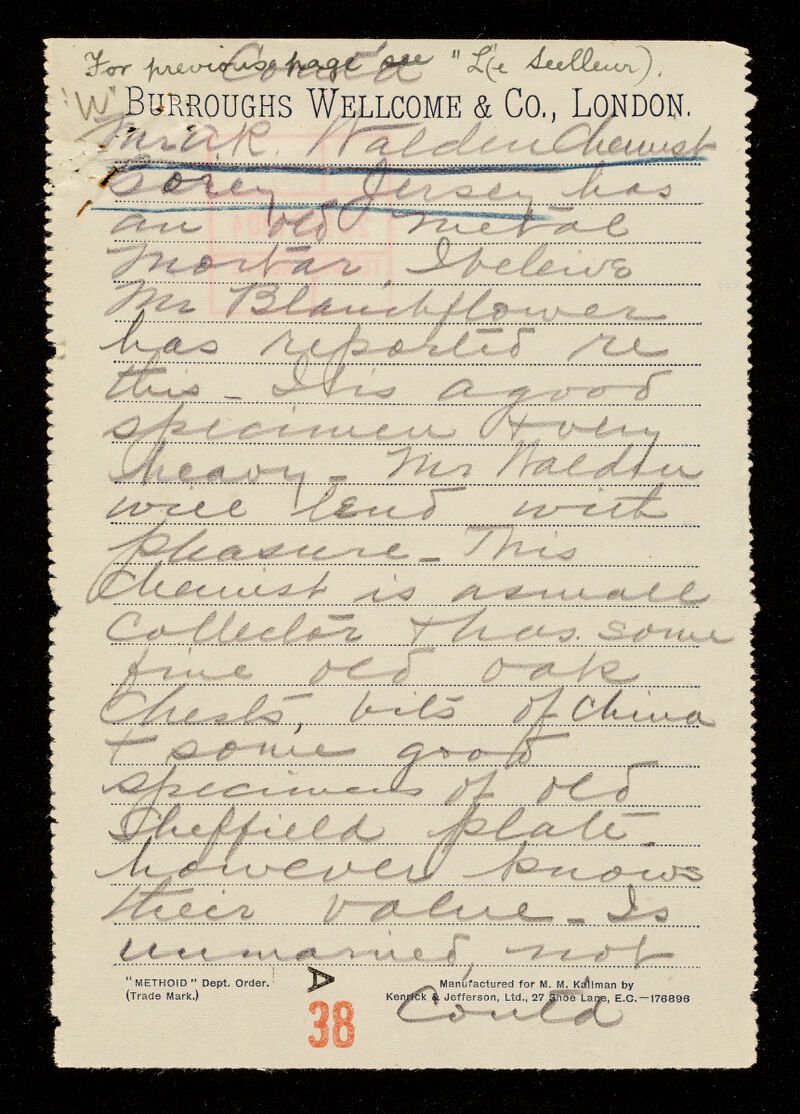 For previous page see "L(e Seelleur).
Contd
"W"
BURROUGHS WELLCOME & CO., LONDON.
Mr A.R. Walden Chemist
Gorey Jersey has
an old metal
mortar. I beleive
Mr Blanchflower
has reported re
this - It is a good
specimen & very
heavy - Mr Walden
will lend with
pleasure - This
Chemist is a small
Collector & has some
fine old oak
Chests, bits of China
& some good
specimens of old
Sheffield plate.
however knows
their value - Is
unmarried, not
"METHOID" Dept. Order.
(Trade Mark.)
A
38
Manufactured for M. M. Kallman by
Kenrick & Jefferson, Ltd., 27 Shoe Lane, E.C.—176896
Contd